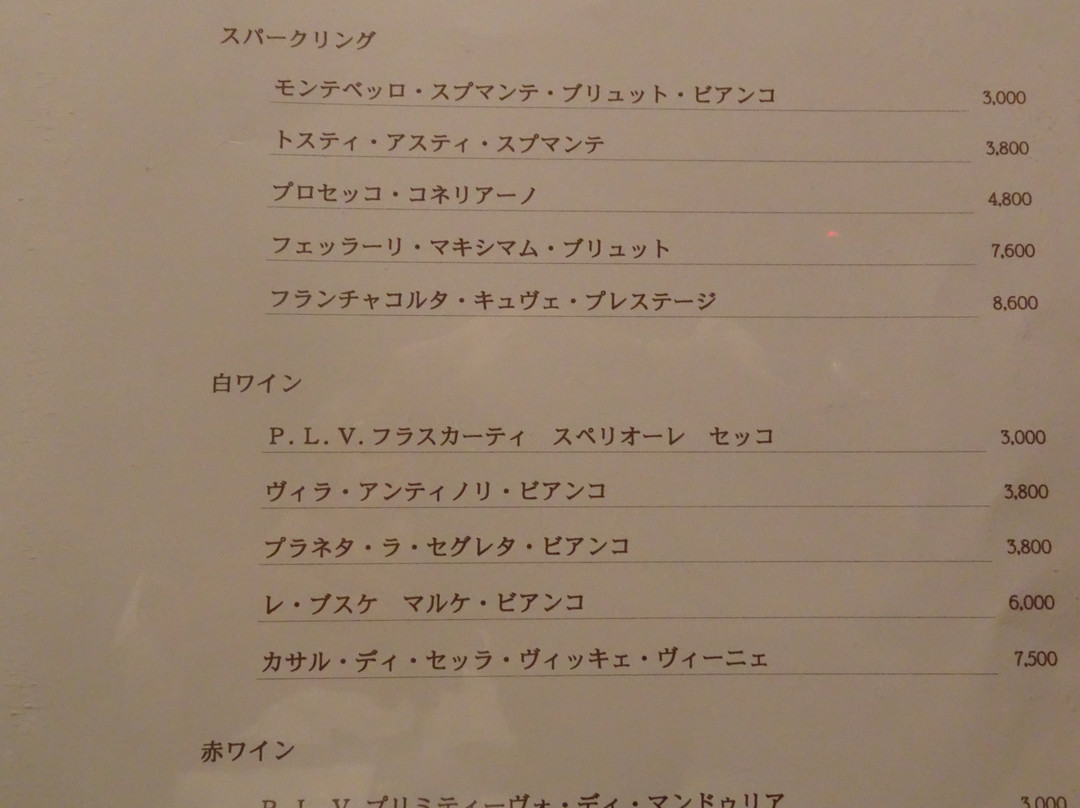 スパークリング
モンテベッロ・スプマンテ・ブリュット・ビアンコ 3,000
トスティ・アスティ・スプマンテ 3,800
プロセッコ・コネリアーノ 4,800
フェッラーリ・マキシマム・ブリュット 7,600
フランチャコルタ・キュヴェ・プレステージ 8,600
白ワイン
P.L.V.フラスカーティ　スペリオーレ　セッコ 3,000
ヴィラ・アンティノリ・ビアンコ 3,800
プラネタ・ラ・セグレタ・ビアンコ 3,800
レ・ブスケ　マルケ・ビアンコ 6,000
カサル・ディ・セッラ・ヴィッキェ・ヴィーニェ 7,500
赤ワイン
P.L.V.プリミティーヴォ・ディ・マンドゥリア 3,000